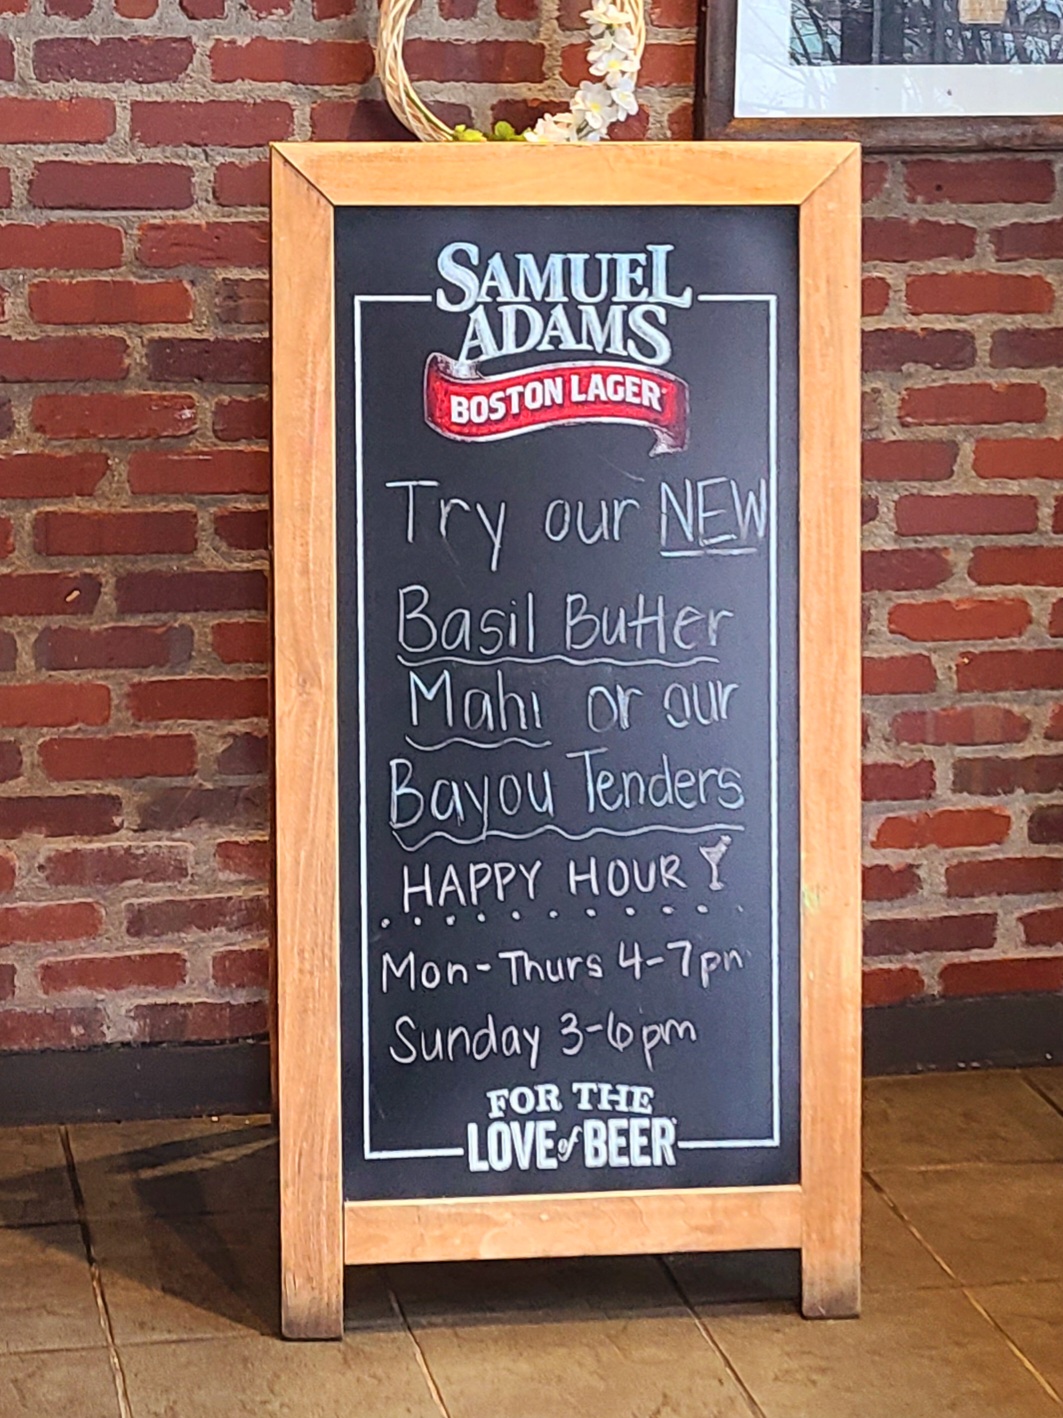 SAMUEL
ADAMS
BOSTON LAGER
Try our NEW
Basil Butter
Mahi or our
Bayou Tenders
HAPPY HOUR
Mon-Thurs 4-7pm
Sunday 3-6pm
FOR THE
LOVE of BEER